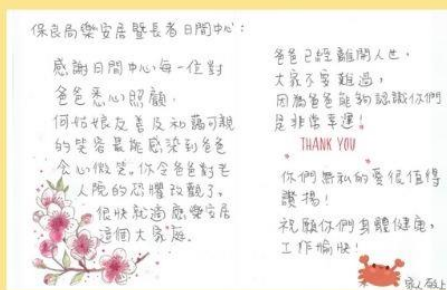 保良局樂安居暨長者日間中心：
感謝日間中心每一位對
爸爸悉心照顧，
何姑娘友善及和藹可親
的笑容最能感染到爸爸
會心微笑。你令爸爸對老
人院的恐懼改觀了，
很快就適應樂安居
這個大家庭。
爸爸已經離開人世，
大家不要難過，
因為爸爸能夠認識你們
是非常幸運！
THANK YOU
你們無私的愛很值得
讚揚！
祝願你們身體健康，
工作愉快！
家人敬上